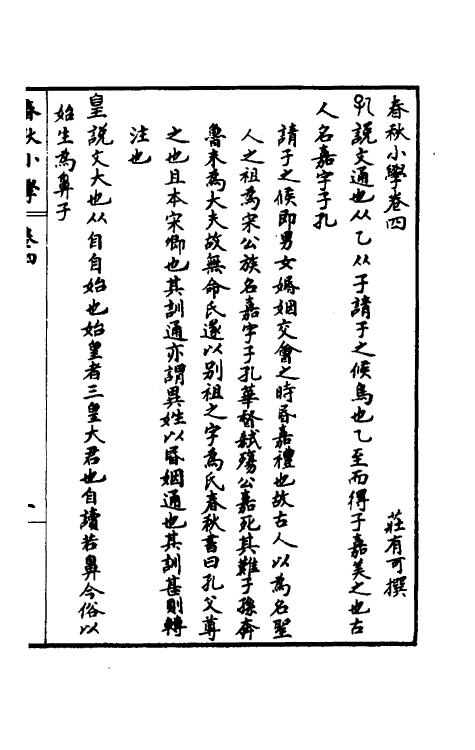 春秋小學卷四
莊有可撰
孔說文通也从乙从子請子之候鳥也乙至而得子嘉美之也古
人名嘉字子孔
請子之候即男女婚姻交會之時昏嘉禮也故古人以為名聖
人之祖為宋公族名嘉字子孔華督弒殤公嘉死其難子孫奔
魯未為大夫故無命氏遂以別祖之字為氏春秋書曰孔父尊
之也且本宋卿也其訓通亦謂異姓以昏姻通也其訓甚則轉
注也
皇說文大也从自自始也始皇者三皇大君也自讀若鼻今俗以
始生為鼻子
春秋小學 卷四
一